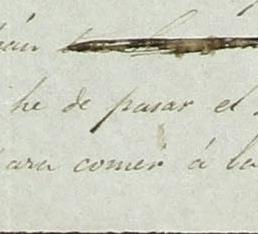 he de pasar el
para comer á la